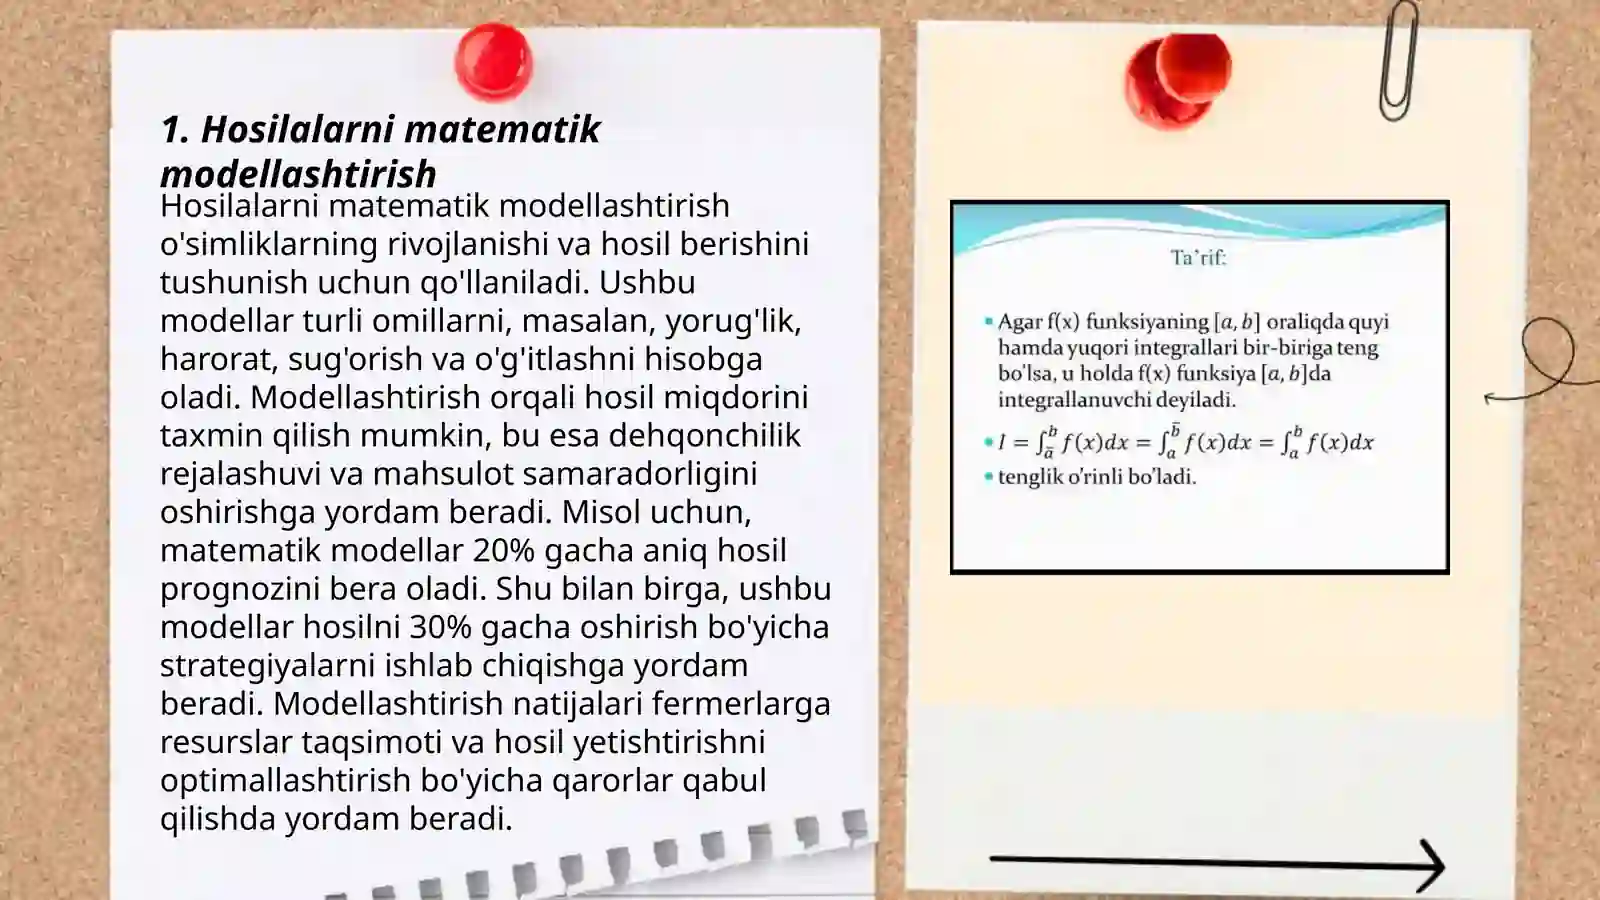 1. Hosilalarni matematik
modellashtirish
Hosilalarni matematik modellashtirish
o'simliklarning rivojlanishi va hosil berishini
tushunish uchun qo'llaniladi. Ushbu
modellar turli omillarni, masalan, yorug'lik,
harorat, sug'orish va o'g'itlashni hisobga
oladi. Modellashtirish orqali hosil miqdorini
taxmin qilish mumkin, bu esa dehqonchilik
rejalashuvi va mahsulot samaradorligini
oshirishga yordam beradi. Misol uchun,
matematik modellar 20% gacha aniq hosil
prognozini bera oladi. Shu bilan birga, ushbu
modellar hosilni 30% gacha oshirish bo'yicha
strategiyalarni ishlab chiqishga yordam
beradi. Modellashtirish natijalari fermerlarga
resurslar taqsimoti va hosil yetishtirishni
optimallashtirish bo'yicha qarorlar qabul
qilishda yordam beradi.
Ta'rif:
Agar f(x) funksiyaning [a, b] oraliqda quyi
hamda yuqori integrallari bir-biriga teng
bo'lsa, u holda f(x) funksiya [a, b]da
integrallanuvchi deyiladi.
I = ∫_a̅^b f(x)dx = ∫_a^b̅ f(x)dx = ∫_a^b f(x)dx
tenglik o'rinli bo'ladi.